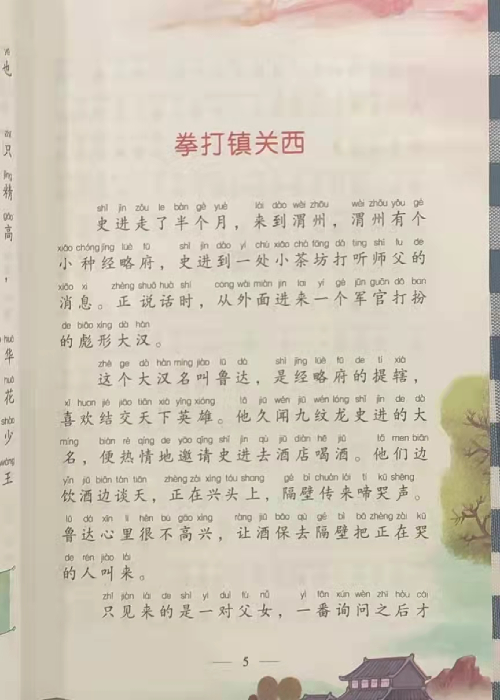 也
只
精
高
，
华
花
少
王
拳打镇关西
shǐ jìn zǒu le bàn gè yuè lái dào wèi zhōu wèi zhōu yǒu gè
史进走了半个月，来到渭州，渭州有个
xiǎo chóng jīng lüè fǔ shǐ jìn dào yí chù xiǎo chá fāng dǎ tīng shī fu de
小种经略府，史进到一处小茶坊打听师父的
xiāo xi zhèng shuō huà shí cóng wài miàn jìn lai yí gè jūn guān dǎ ban
消息。正说话时，从外面进来一个军官打扮
de biāo xíng dà hàn
的彪形大汉。
zhè ge dà hàn míng jiào lǔ dá shì jīng lüè fǔ de tí xiá
这个大汉名叫鲁达，是经略府的提辖，
xǐ huan jié jiāo tiān xià yīng xióng tā jiǔ wén jiǔ wén lóng shǐ jìn de dà
喜欢结交天下英雄。他久闻九纹龙史进的大
míng biàn rè qíng de yāo qǐng shǐ jìn qù jiǔ diàn hē jiǔ tā men biān
名，便热情地邀请史进去酒店喝酒。他们边
yǐn jiǔ biān tán tiān zhèng zài xìng tóu shang gé bì chuán lái tí kū shēng
饮酒边谈天，正在兴头上，隔壁传来啼哭声。
lǔ dá xīn li hěn bù gāo xìng ràng jiǔ bǎo qù gé bì bǎ zhèng zài kū
鲁达心里很不高兴，让酒保去隔壁把正在哭
de rén jiào lái
的人叫来。
zhǐ jiàn lái de shì yí duì fù nǚ yì fān xún wèn zhī hòu cái
只见来的是一对父女，一番询问之后才
5